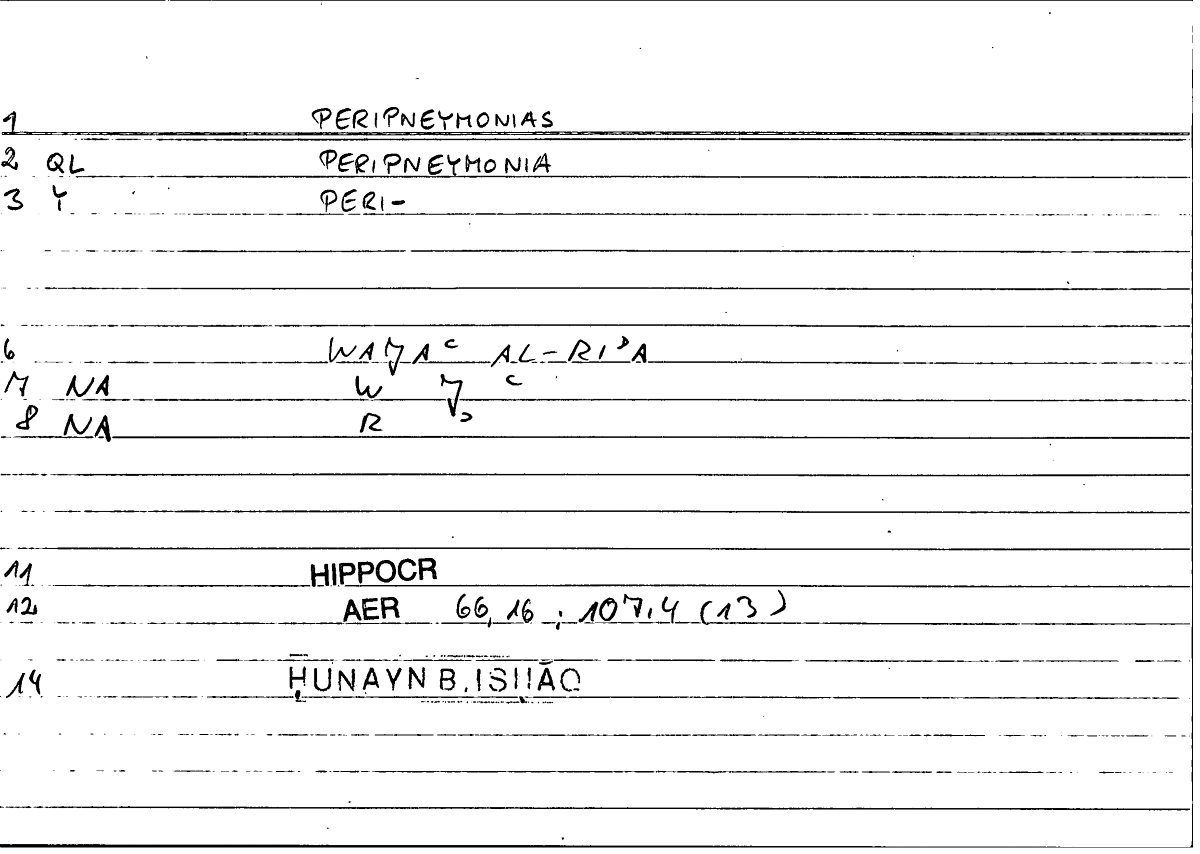 1 PERIPNEYMONIAS
2 QL PERIPNEYMONIA
3 Y PERI-
6 WAJAʿ AL-RIʾA
7 NA W J ʿ
8 NA R ʾ
11 HIPPOCR
12 AER 66,16 ; 107,4 (13)
14 ḤUNAYN B. ISḤĀQ